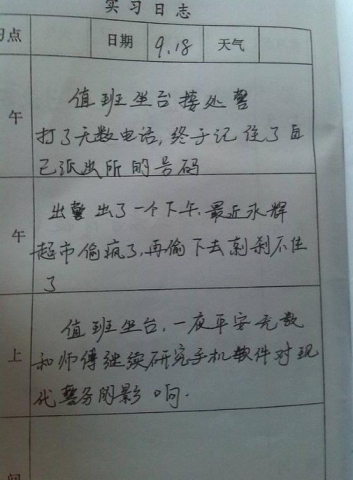 实习日志
习点 日期 9.18 天气
午
值班坐台接处警
打了无数电话,终于记住了自
己派出所的号码
午
出警出了一个下午.最近永辉
超市偷疯了,再偷下去刹不住
了
上
值班坐台,一夜平安无数
和师傅继续研究手机软件对现
代警务的影响.